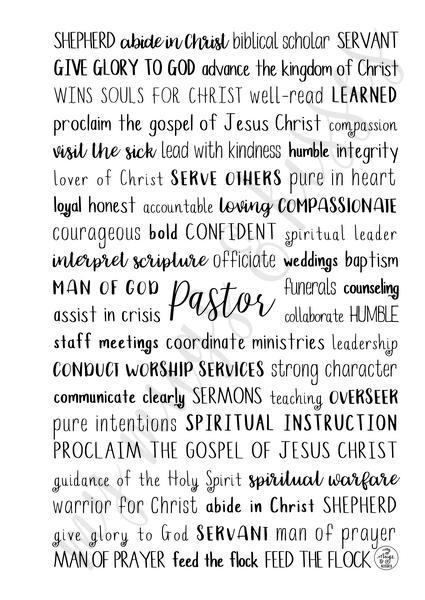 SHEPHERD abide in Christ biblical scholar SERVANT
GIVE GLORY TO GOD advance the kingdom of Christ
WINS SOULS FOR CHRIST well-read LEARNED
proclaim the gospel of Jesus Christ compassion
visit the sick lead with kindness humble integrity
lover of Christ SERVE OTHERS pure in heart
loyal honest accountable loving COMPASSIONATE
courageous bold CONFIDENT spiritual leader
interpret scripture officiate weddings baptism
MAN OF GOD Pastor funerals counseling
assist in crisis collaborate HUMBLE
staff meetings coordinate ministries leadership
CONDUCT WORSHIP SERVICES strong character
communicate clearly SERMONS teaching OVERSEER
pure intentions SPIRITUAL INSTRUCTION
PROCLAIM THE GOSPEL OF JESUS CHRIST
guidance of the Holy Spirit spiritual warfare
warrior for Christ abide in Christ SHEPHERD
give glory to God SERVANT man of prayer
MAN OF PRAYER feed the flock FEED THE FLOCK